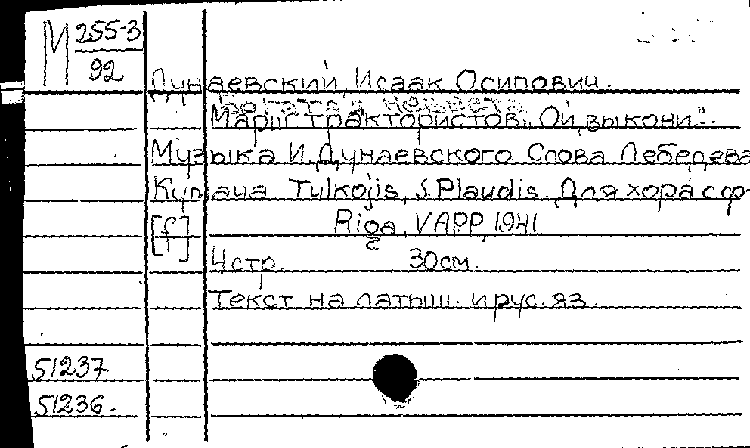 М 255-3
92
Дунаевский, Исаак Осипович.
Богатая невеста
Марш трактористов „Ой, вы кони".
Музыка И. Дунаевского Слова Лебедева
Кумача Tulkojis, J. Plaudis Для хора с ф
[f] Riga, VAPP, 1941
4 стр. 30см.
Текст на латыш. и рус. яз.
51237
51236.